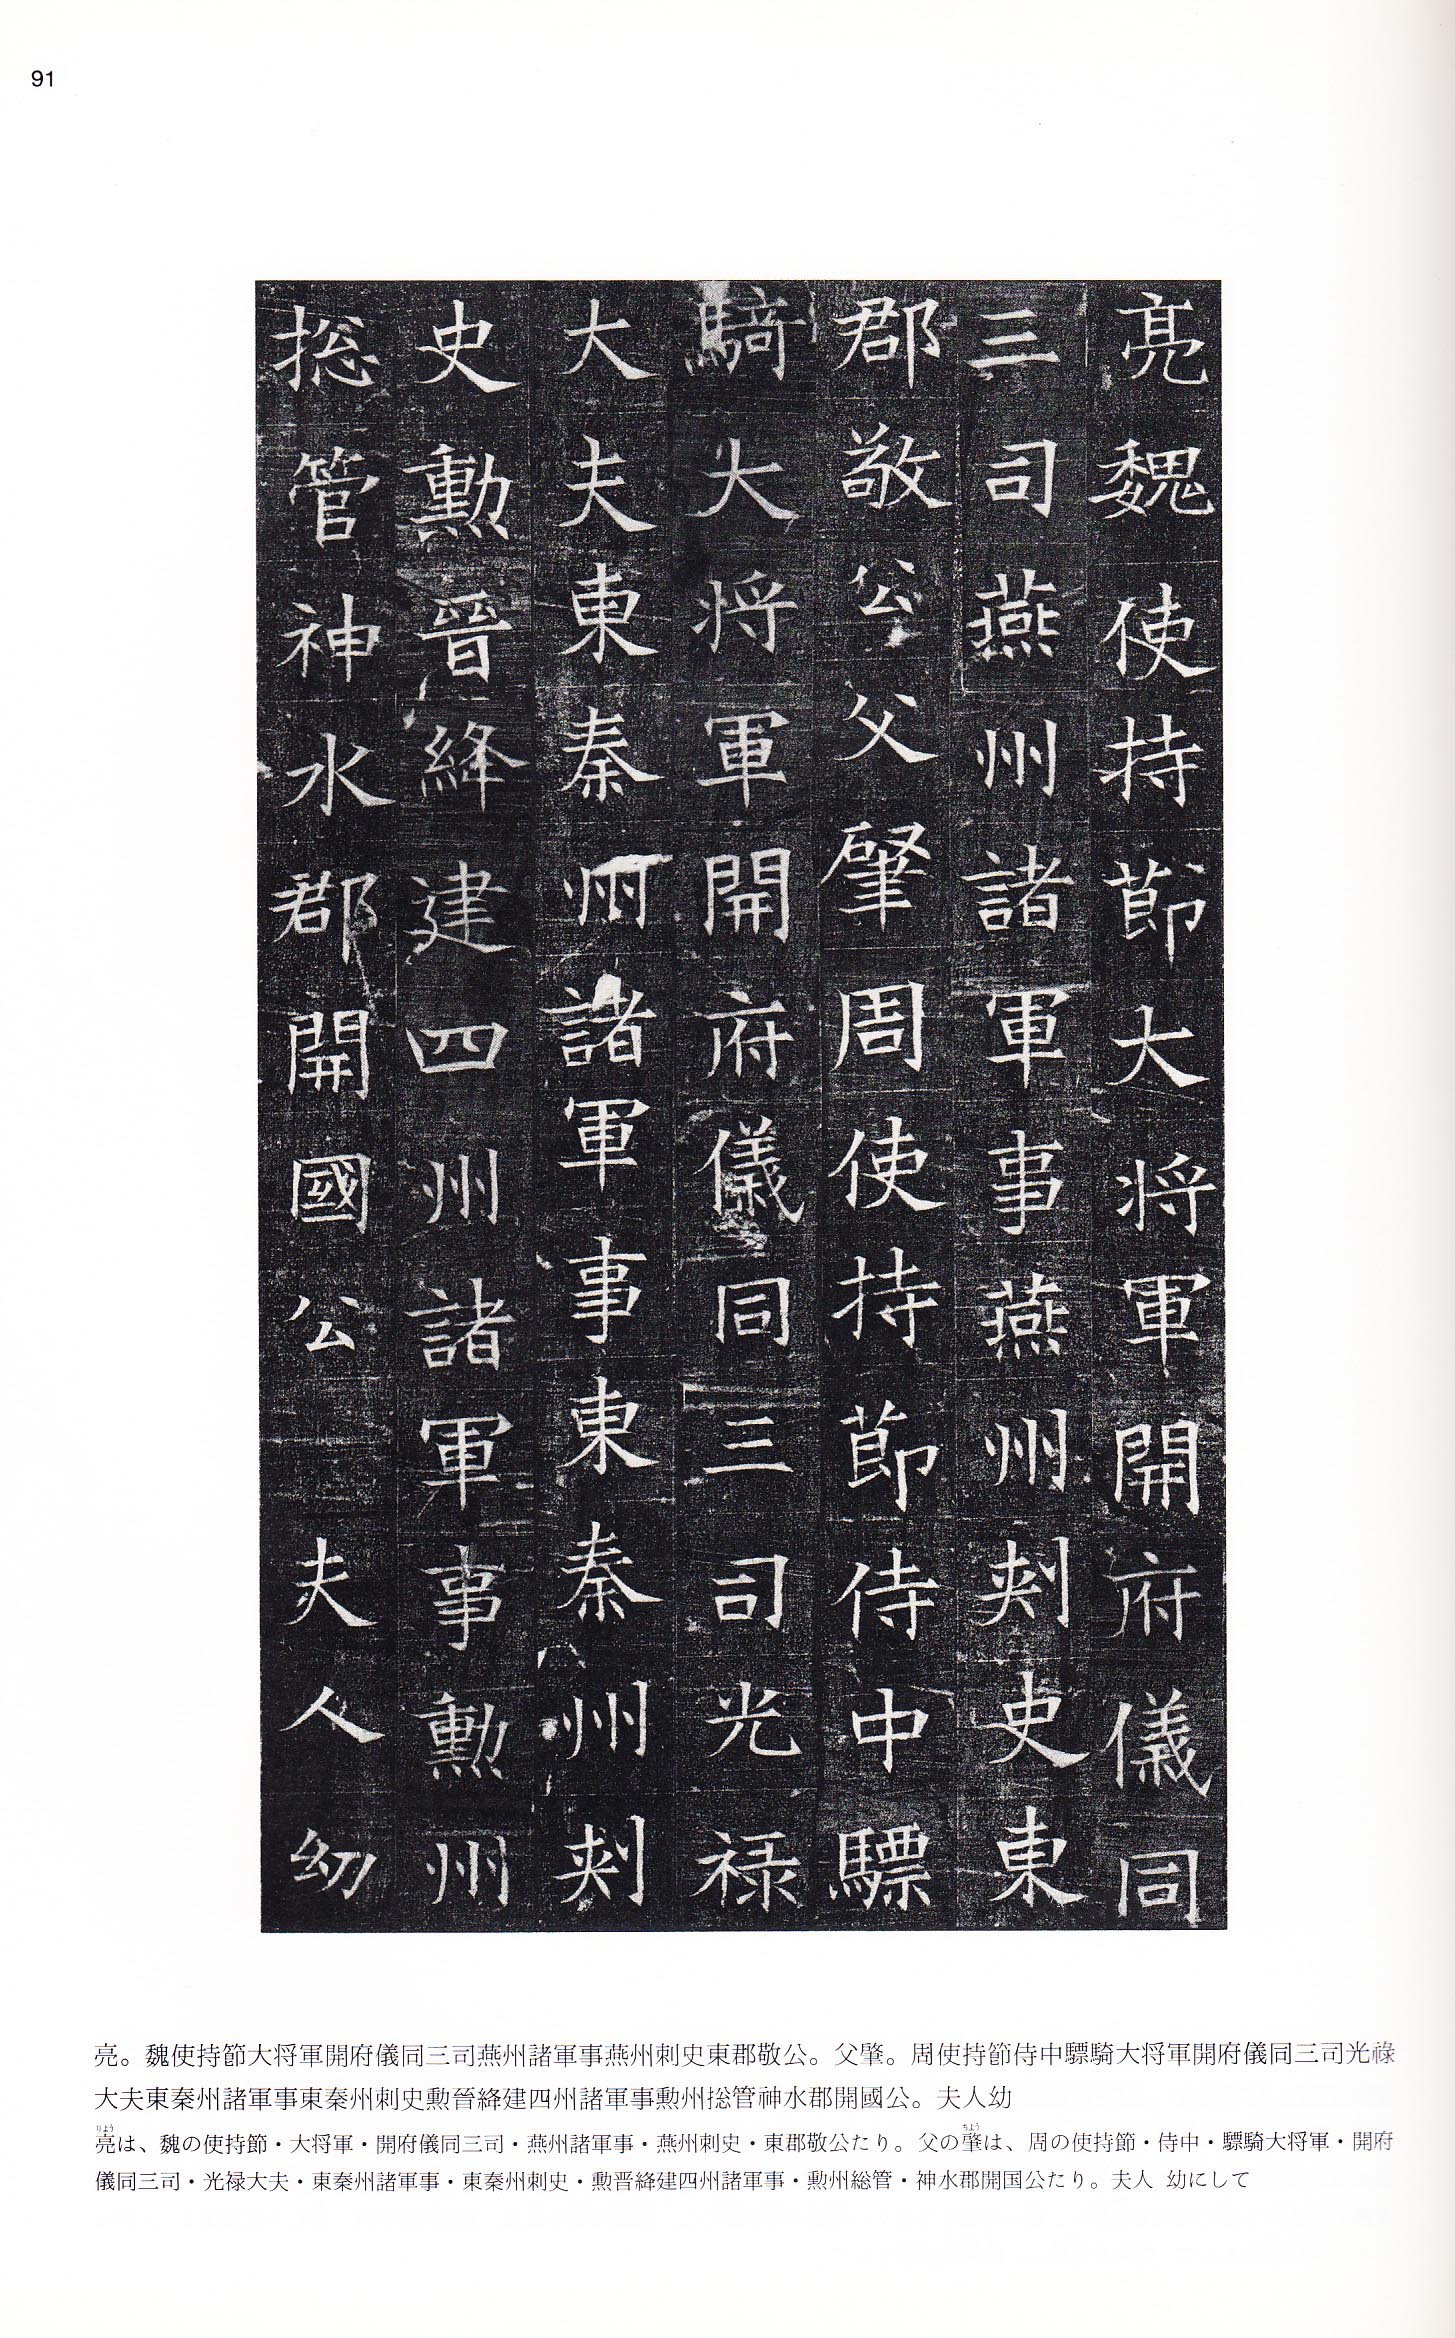 91
亮魏使持節大将軍開府儀同
三司燕州諸軍事燕州刺史東
郡敬公父肇周使持節侍中驃
騎大将軍開府儀同三司光禄
大夫東秦州諸軍事東秦州刺
史勲晉絳建四州諸軍事勲州
捴管神水郡開國公 夫人幼
亮。魏使持節大将軍開府儀同三司燕州諸軍事燕州刺史東郡敬公。父肇。周使持節侍中驃騎大将軍開府儀同三司光祿
大夫東秦州諸軍事東秦州刺史勲晉絳建四州諸軍事勲州捴管神水郡開國公。夫人幼
りょう ちょう
亮は、魏の使持節・大将軍・開府儀同三司・燕州諸軍事・燕州刺史・東郡敬公たり。父の肇は、周の使持節・侍中・驃騎大将軍・開府
儀同三司・光禄大夫・東秦州諸軍事・東秦州刺史・勲晋絳建四州諸軍事・勲州総管・神水郡開国公たり。夫人 幼にして